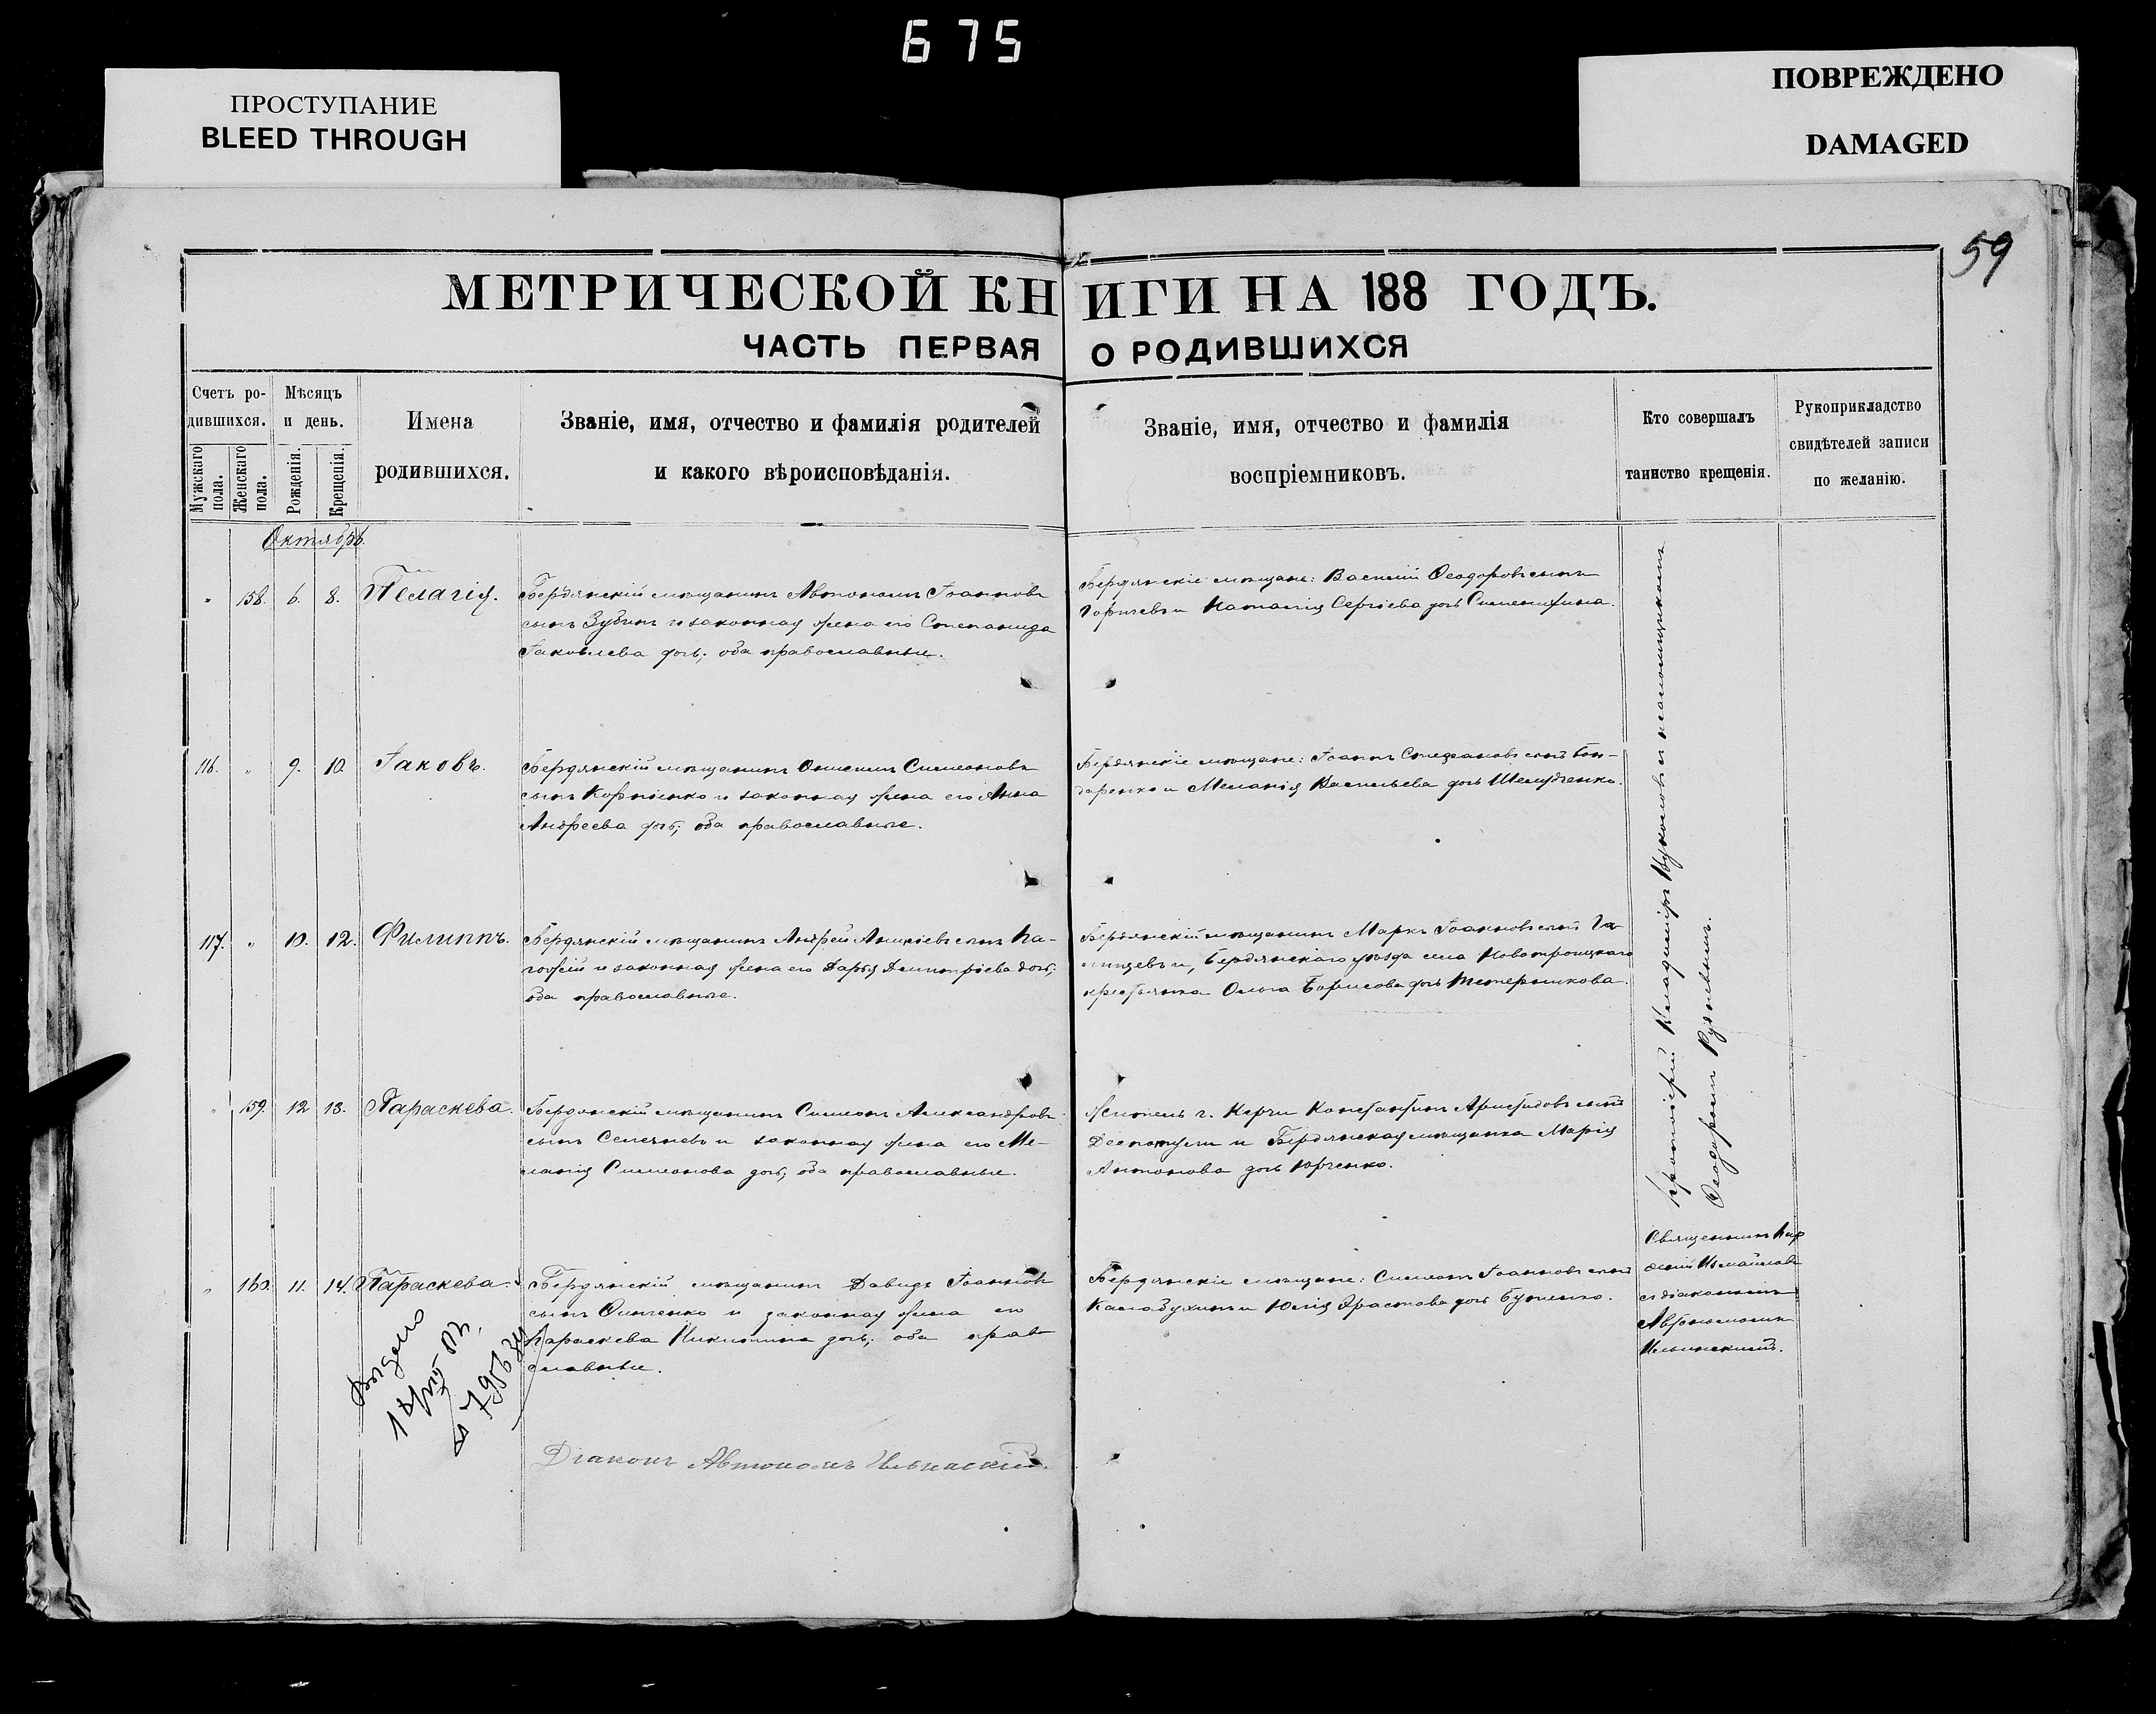 675
ПРОСТУПАНИЕ
BLEED THROUGH
ПОВРЕЖДЕНО
DAMAGED
59
МЕТРИЧЕСКОЙ КНИГИ НА 188 ГОДЪ.
ЧАСТЬ ПЕРВАЯ О РОДИВШИХСЯ
Счетъ ро-
дившихся.
Мужскаго пола.
Женскаго пола.
Мѣсяцъ
и день.
Рожденія.
Крещенія.
Имена
родившихся.
Званіе, имя, отчество и фамилія родителей
и какого вѣроисповѣданія.
Званіе, имя, отчество и фамилія
воспріемниковъ.
Кто совершалъ
таинство крещенія.
Рукоприкладство
свидѣтелей записи
по желанію.
Октябрь.
" 158. 6. 8. Пелагія.
Бердянскій мѣщанинъ Автономъ Іоанновъ
сынъ Зубинъ и законная жена его Степанида
Іаковлева дочь; оба православные.
Бердянскіе мѣщане: Василій Ѳеодоровъ сынъ
и Наталія Сергіева дочь
116. " 9. 10. Іаковъ.
Бердянскій мѣщанинъ Онисимъ Симеоновъ
сынъ Корніенко и законная жена его Анна
Андреева дочь; оба православные.
Бердянскіе мѣщане: Іоаннъ Стефановъ сынъ Бон-
даренко и Меланія Васильева дочь Шелудченко.
117. " 10. 12. Филиппъ.
Бердянскій мѣщанинъ Андрей сынъ На-
и законная жена его Дарья Димитріева дочь;
оба православные.
Бердянскій мѣщанинъ Маркъ Іоанновъ сынъ Га-
и, Бердянскаго уѣзда села Новотроицкаго
крестьянка Ольга Борисова дочь Тетерникова.
" 159. 12 13. Параскева.
Бердянскій мѣщанинъ Симеонъ Александровъ
сынъ Селезневъ и законная жена его Ме-
ланія Симеонова дочь; оба православные.
Житель г. Керчи Константинъ Аристидовъ сынъ
Деспотули и Бердянская мѣщанка Марія
Антонова дочь Юрченко.
" 160. 11. 14. Параскева.
Бердянскій мѣщанинъ Давидъ Іоанновъ
сынъ и законная жена его
Параскева Никитина дочь; оба право
славные.
Бердянскіе мѣщане: Симеонъ Іоанновъ сынъ
и Юлія Эрастова дочь Бутенко.
Протоіерей Владиміръ Вуколовъ и псаломщикомъ
Ѳеодоромъ
Священникъ
Измайловъ
съ діакономъ
Автономомъ
Ильинскимъ.
Выдано
79563
Діаконъ Автономъ Ильинскій.